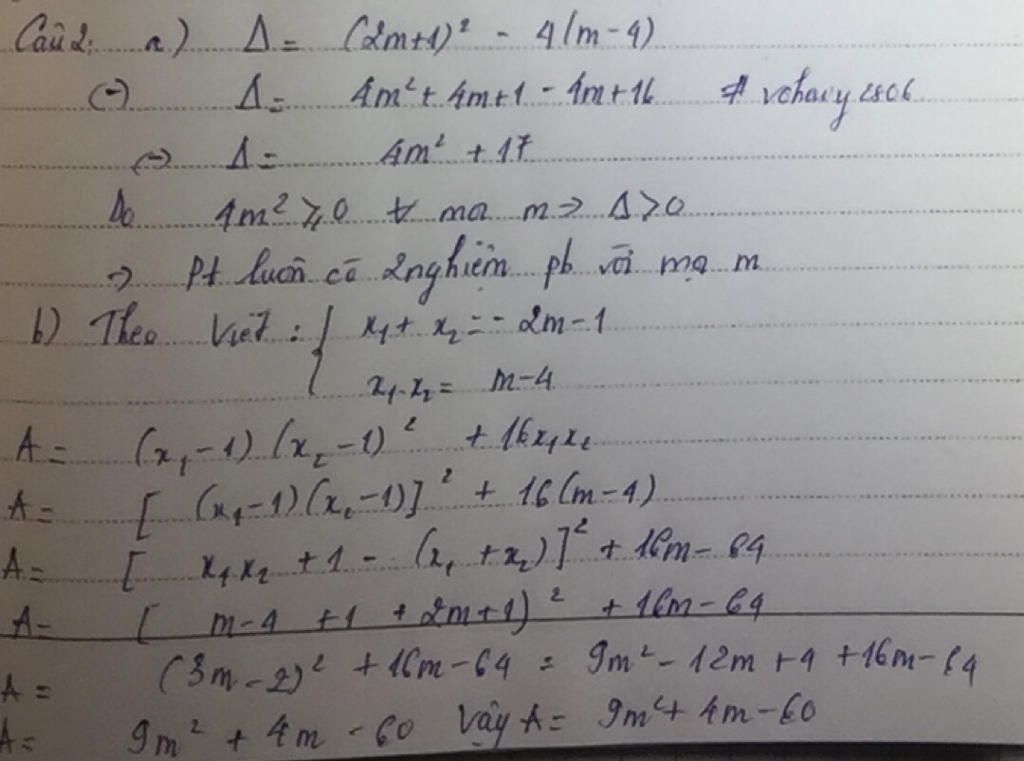 Câu 2: a) Δ = (2m+1)² - 4(m-4)
(-) Δ = 4m² + 4m+1 - 4m+16 # vchauy 2806
(-) Δ = 4m² + 17
Do 4m² ≥ 0 ∀ mọi m => Δ>0
=> Pt luôn có 2 nghiệm pb với mọi m
b) Theo Viét : { x₁ + x₂ = - 2m-1
x₁.x₂ = m-4
A = (x₁-1) (x₂-1)² + 16x₁x₂
A = [ (x₁-1)(x₂-1)]² + 16(m-4)
A = [ x₁x₂ + 1 - (x₁ + x₂)]² + 16m - 64
A = ( m-4 +1 + 2m+1)² + 16m-64
A = (3m-2)² + 16m-64 = 9m² - 12m + 4 + 16m-64
A = 9m² + 4m - 60 Vậy A = 9m² + 4m-60